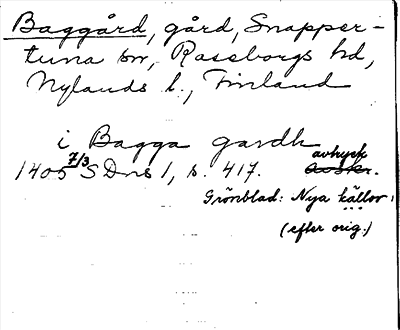 Baggård, gård, Snapper-
tuna sn, Raseborgs hd,
Nylands l., Finland
i Bagga gardh
1405 7/3 SDns 1, s. 417. avtryck
Grönblad: Nya källor
(efter orig.)